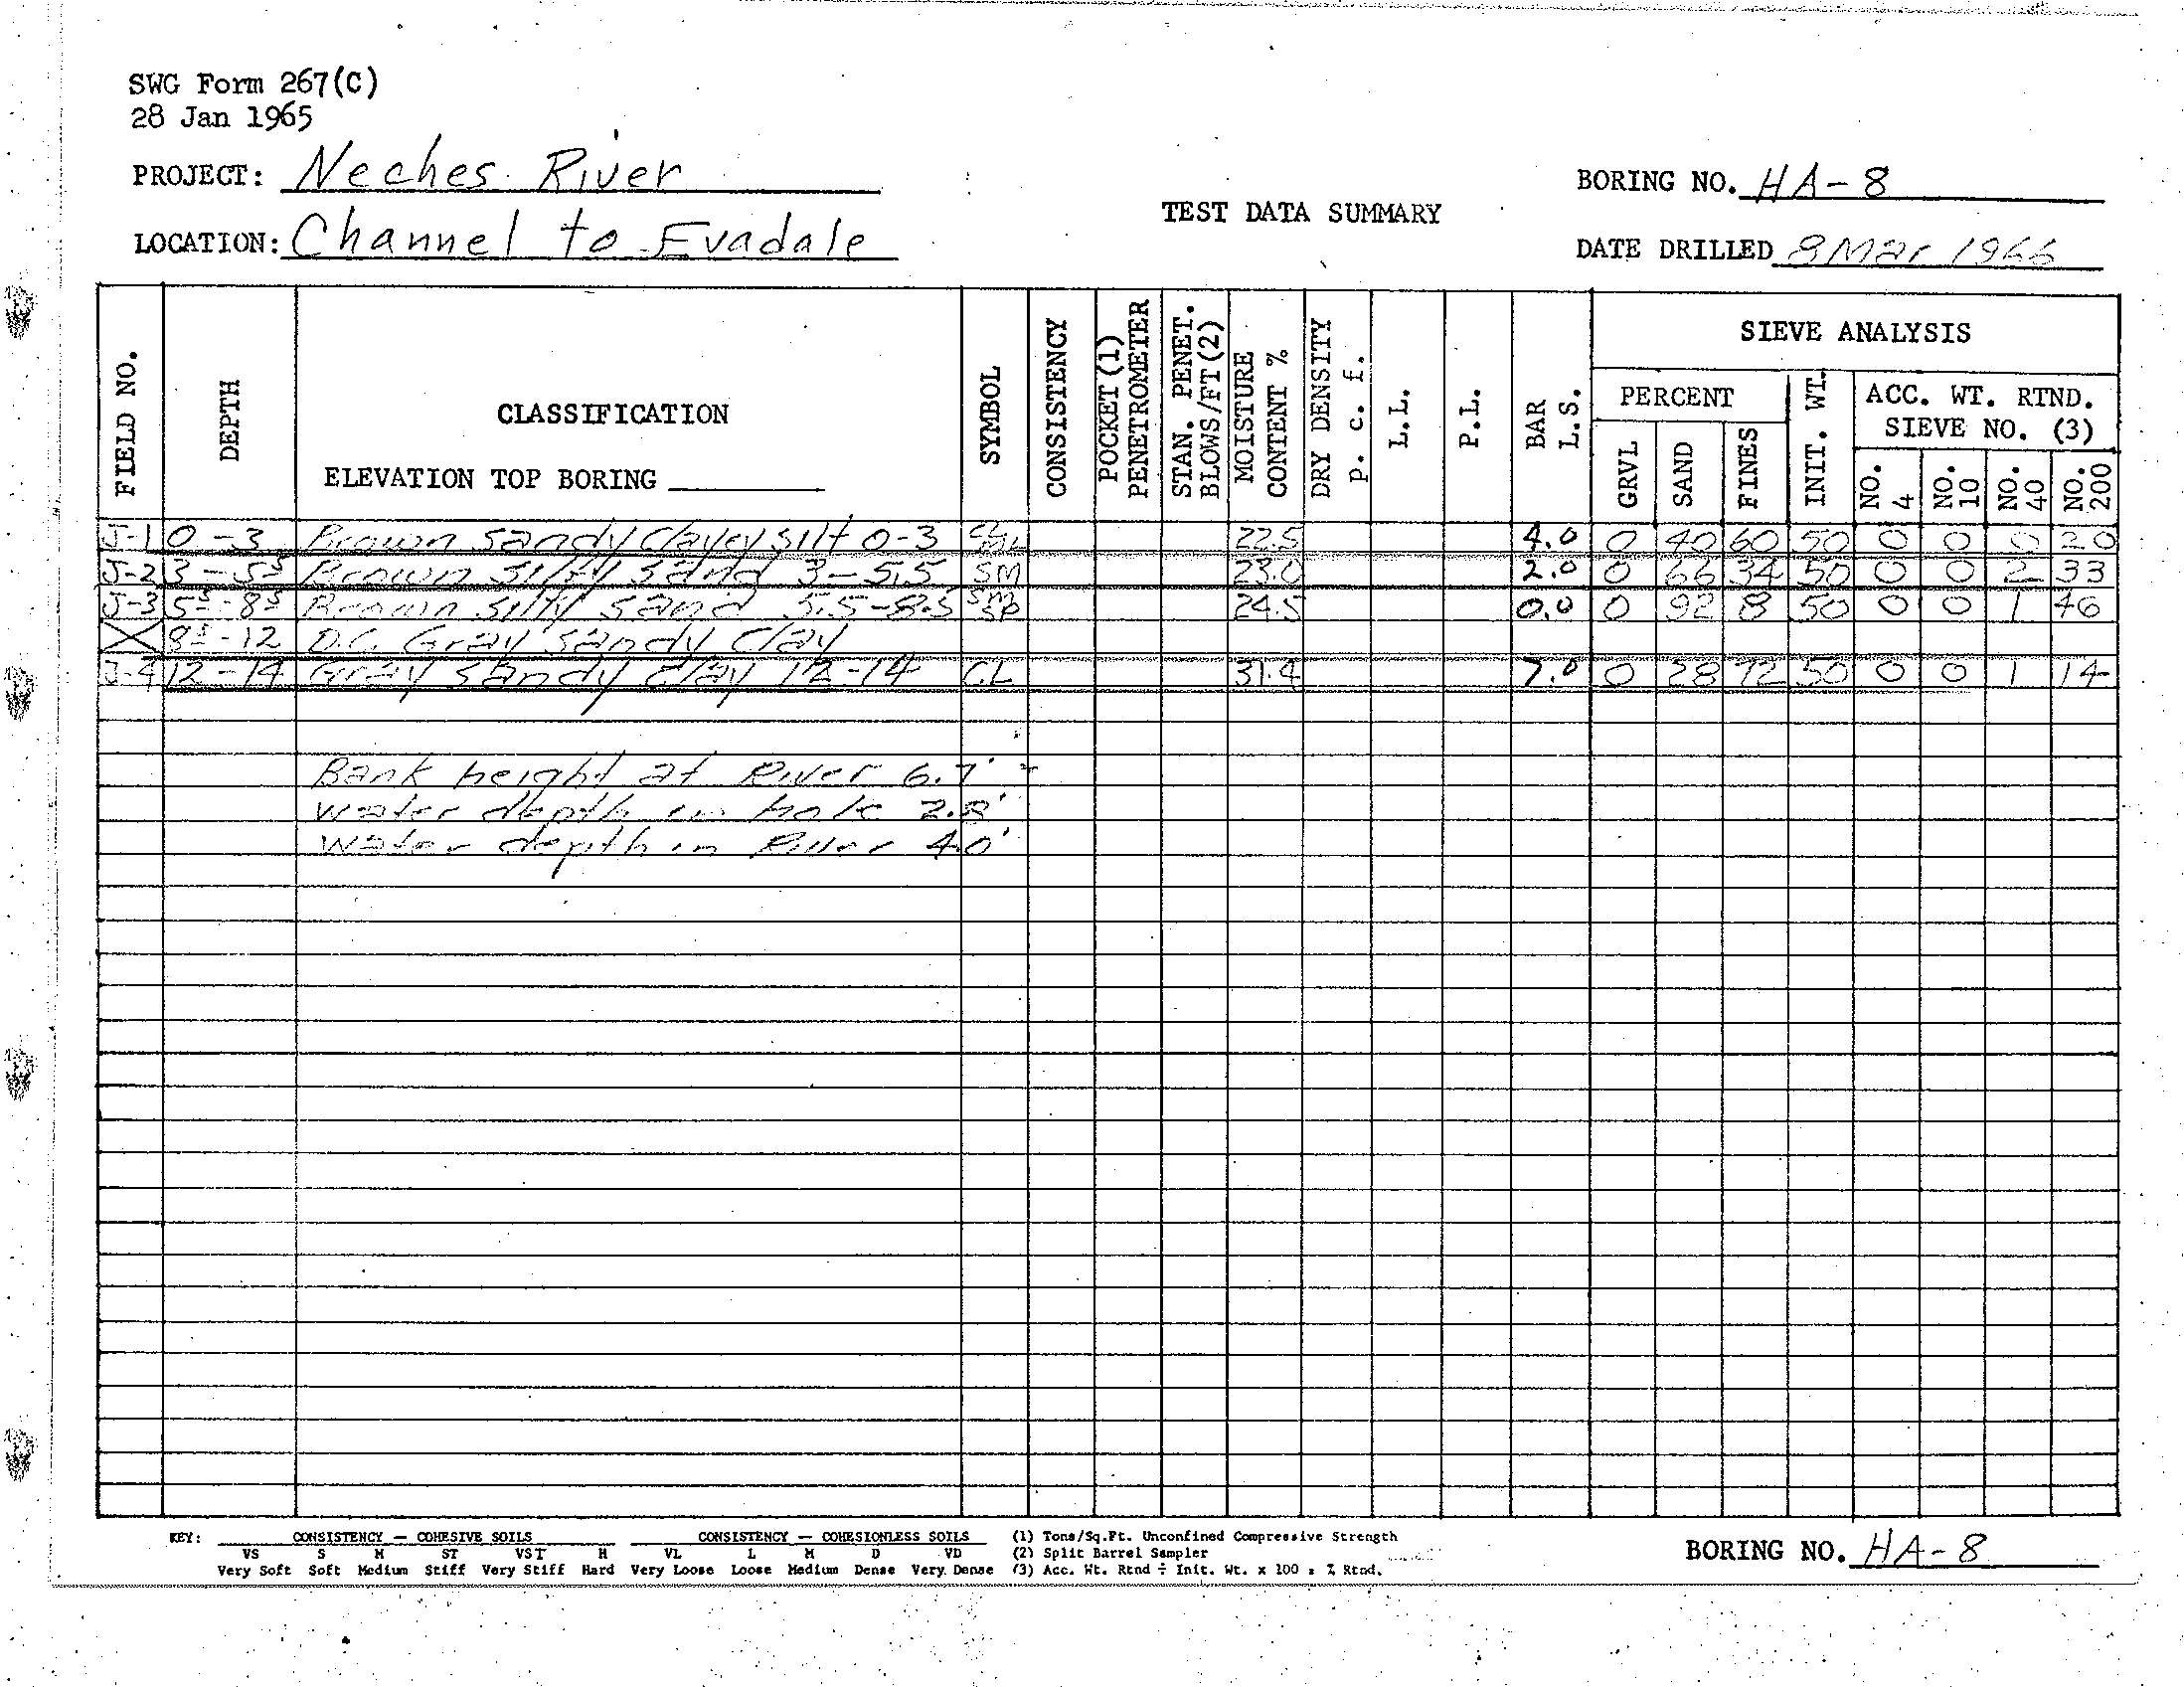 SWG Form 267(C)
28 Jan 1965
PROJECT: Neches River
LOCATION: Channel to Evadale
TEST DATA SUMMARY
BORING NO. HA-8
DATE DRILLED 8 Mar 1966
FIELD NO.
DEPTH
CLASSIFICATION
ELEVATION TOP BORING
SYMBOL
CONSISTENCY
POCKET (1) PENETROMETER
STAN. PENET. BLOWS/FT (2)
MOISTURE CONTENT %
DRY DENSITY p. c. f.
L.L.
P.L.
BAR L.S.
SIEVE ANALYSIS
PERCENT
GRVL
SAND
FINES
INIT. WT.
ACC. WT. RTND.
SIEVE NO. (3)
NO. 4
NO. 10
NO. 40
NO. 200
J-1 0-3 Brown sandy clayey silt 0-3 22.5 4.0 0 40 60 50 0 0 0 20
J-2 3-5⁵ Brown silty sand 3-5.5 SM 23.0 2.0 0 66 34 50 0 0 2 33
J-3 5⁵-8⁵ Brown silty sand 5.5-8.5 SM SP 24.5 0.0 0 92 8 50 0 0 1 46
X 8⁵-12 D.C. Gray sandy clay
J-4 12-14 Gray sandy clay 12-14 CL 31.4 7.0 0 28 72 50 0 0 1 14
Bank height at River 6.7'
water depth in hole 2.8'
water depth in River 40'
KEY: CONSISTENCY — COHESIVE SOILS CONSISTENCY — COHESIONLESS SOILS (1) Tons/Sq.Ft. Unconfined Compressive Strength
VS S M ST VST H VL L M D VD (2) Split Barrel Sampler
Very Soft Soft Medium Stiff Very Stiff Hard Very Loose Loose Medium Dense Very Dense (3) Acc. Wt. Rtnd ÷ Init. Wt. x 100 = % Rtnd.
BORING NO. HA-8